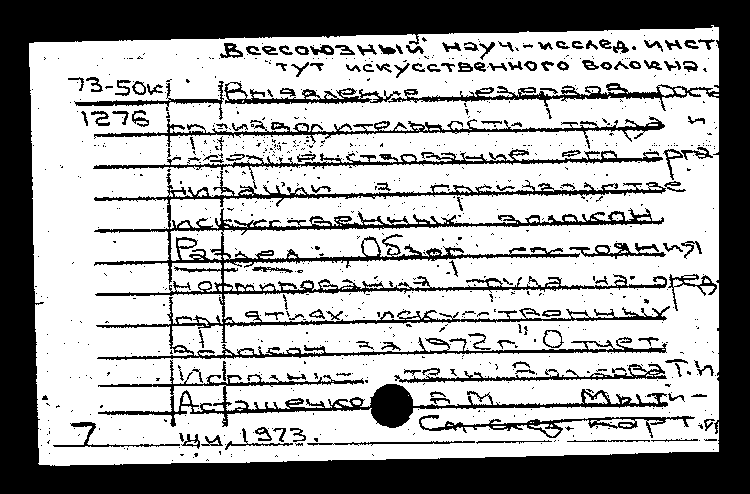 Всесоюзный науч.-исслед. инсти
тут искусственного волокна.
73-50к Выявление резервов роста
1276 производительности труда и
совершенствование его орга-
низации в производстве
искусственных волокон.
Раздел: Обзор состояния
нормирования труда на пред-
приятиях искусственных
волокон за 1972 г." Отчет.
Исполнители: Волкова Т.И.
Асташенко В.М. Мыти-
7 щи, 1973. См. след. карт.